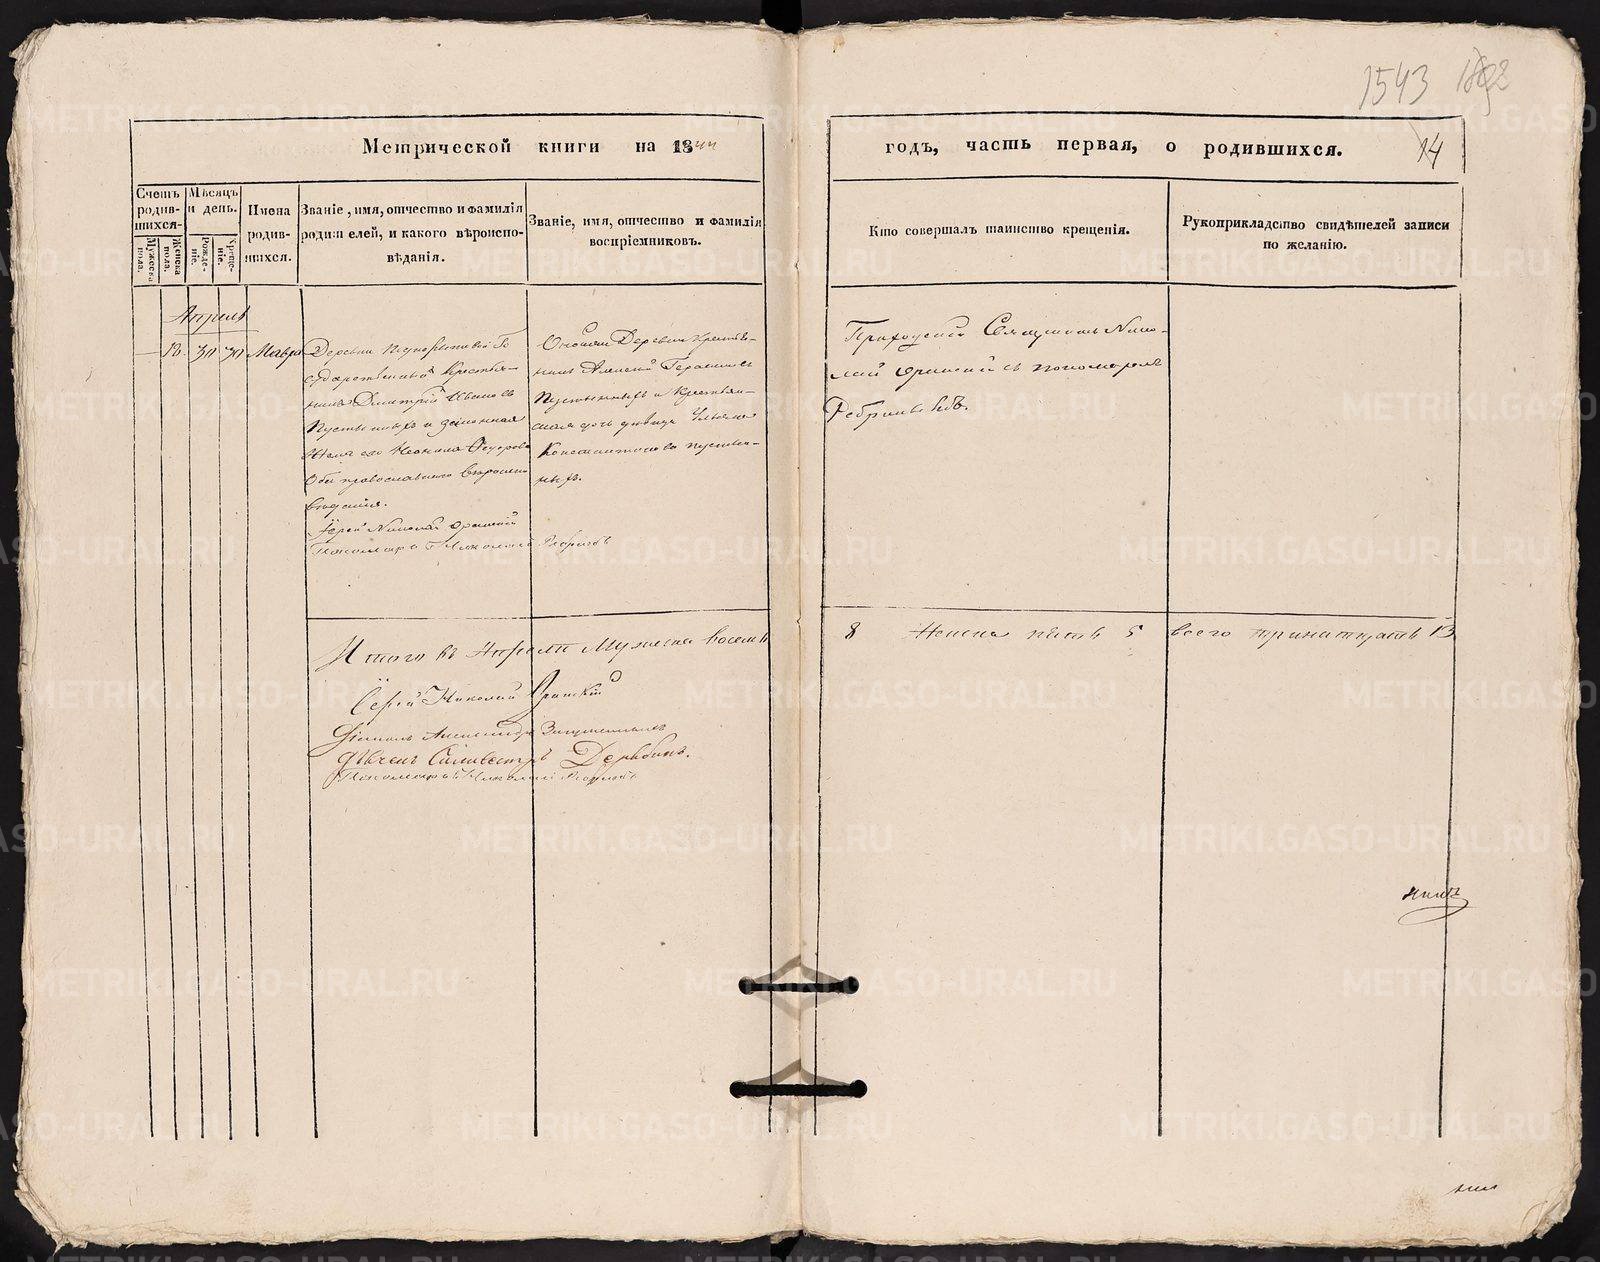 1543
14
Метрической книги на 1844
годъ, часть первая, о родившихся.
Счетъ родив-шихся.
Мѣсяцъ и день.
Мужеска пола.
Женска пола.
Рожде-ніе.
Креще-ніе.
Имена родив-шихся.
Званіе, имя, отчество и фамилія
родителей, и какого вѣроиспо-
вѣданія.
Званіе, имя, отчество и фамилія
воспріемниковъ.
Кто совершалъ таинство крещенія.
Рукоприкладство свидѣтелей записи
по желанію.
Апрель
30 30 Мавра
Деревни Го
сударственной Крестья-
нинъ Дмитрій Ивановъ
Пустынныхъ и законная
жена его Неонила Федорова
Оба православнаго вѣроиспо
вѣданія.
Іерей Николай
Пономарь Николай
Деревни Крестья-
нинъ Алексей Герасимовъ
Пустынныхъ и Крестьян-
ская дочь девица Ульяна
Константинова Пустын-
ныхъ.
Приходскій Священникъ Нико-
лай съ пономаремъ
Итого въ Апреле Мужеска восемь
8 Женска пять 5 всего тринатцать 13
Іерей Николай
Діаконъ Александръ
Дьячекъ Силивестръ Дерябинъ.
Пономарь Николай
METRIKI.GASO-URAL.RU